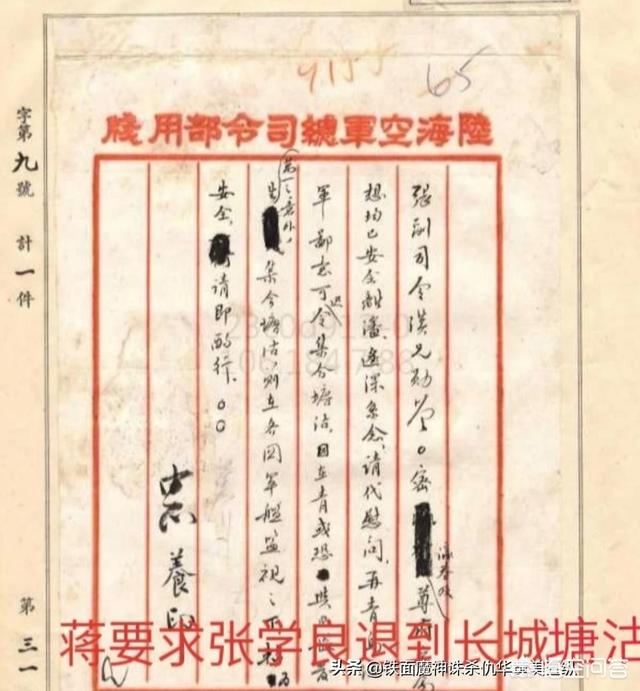 65
陸海空軍總司令部用牋
張副司令漢兄勛鑒。密 尊府
想均已安全離瀋，遠深系念，請代慰問，再青島
軍艦 可 令集合塘沽，因在青或恐
萬一之意外，
集合塘沽，則在各國軍艦監視之下
安全， 請即酌行。○○
中正養印
字第九號 計一件
第三一
蒋要求张学良退到长城塘沽
头条 @铁面魔神诛杀仇华
悟空问答